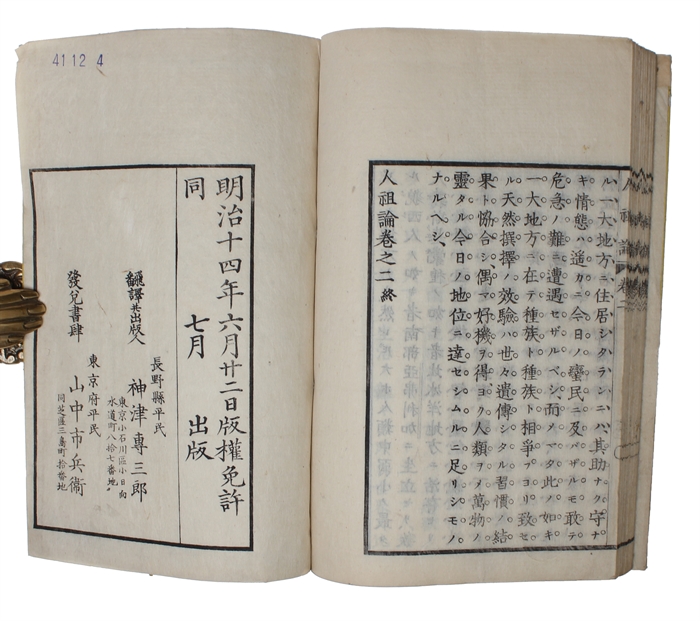 ル、一大地方ニ住居シタラシニハ、其助ナク守ナ
キ情態ハ遥カニ今日ノ蠻民ニ及バザルモ敢テ
危急ノ難ニ遭遇セザルベシ、而メ又此ノ如キ
一大地方ニ在テ種族ト種族ト相爭フヨリ致セ
ル天然撰擇ノ效驗ハ世々遺傳シタル習慣ノ結
果ト恊合シ、偶マ好機ヲ得ヨク人類ヲメ萬物ノ
靈タル今日ノ地位ニ達セシムルニ足リシモノ
ナルヘシ、
人祖論卷之二 終
人祖論 卷二
41 12 4
明治十四年六月廿二日版權免許
同 七月 出版
長野縣平民
飜譯兼出版人 神津專三郎
東京小石川區小日向
水道町八拾七番地
東京府平民
發兌書肆 山中市兵衞
同芝區三島町拾番地